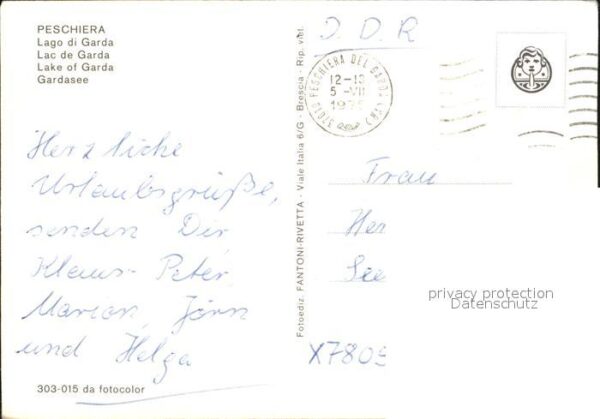 PESCHIERA
Lago di Garda
Lac de Garda
Lake of Garda
Gardasee
Herzliche
Urlaubsgrüße,
senden Dir
Klaus-Peter,
Marion, Jörn
und Helga
303-015 da fotocolor
Fotoediz. FANTONI-RIVETTA - Viale Italia 6/G - Brescia - Rip. viet.
D. D. R
37019 PESCHIERA DEL GARDA (VR)
12-13
5 -VII
Frau
Her
See
privacy protection
Datenschutz
X7805